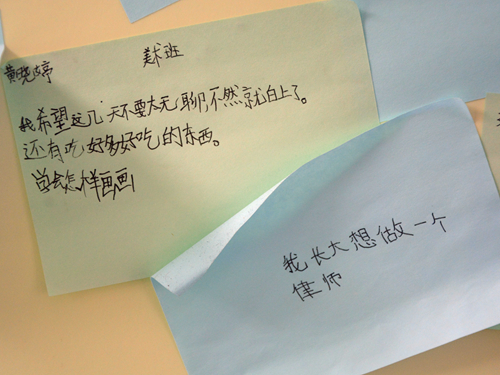 黄晓婷 美术班
我希望这几天不要太无聊,不然就白上了。
还有吃好多好吃的东西。
学会怎样画画
我长大想做一个
律师